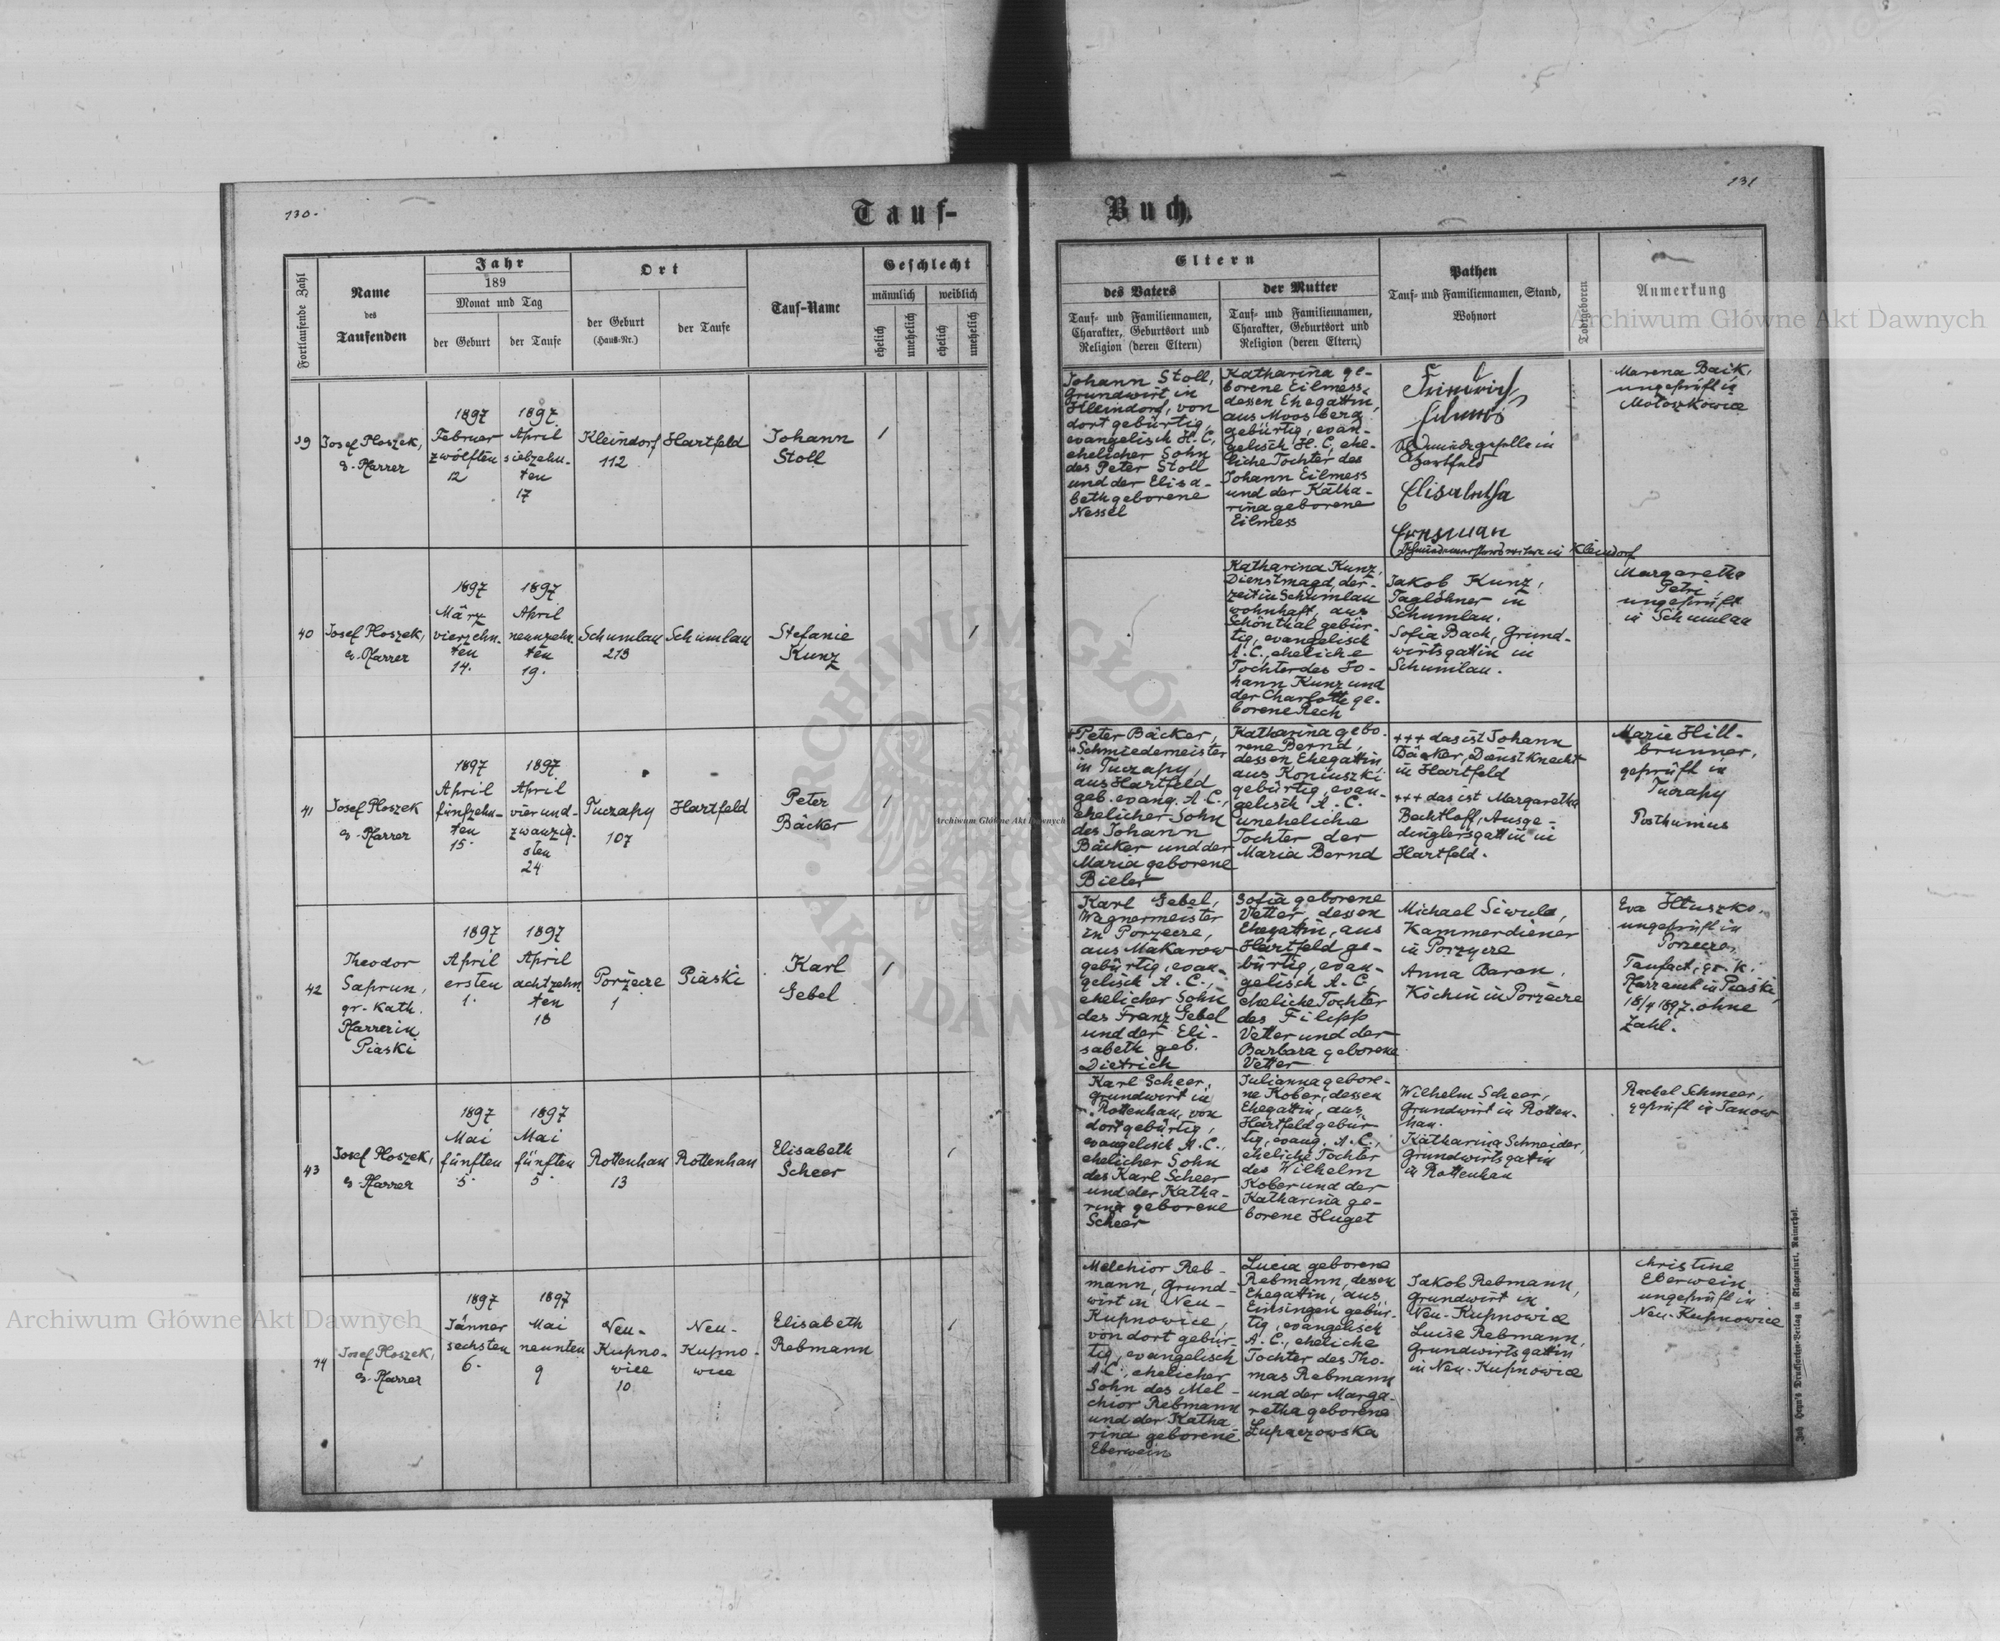 130.
Tauf-
Fortlaufende Zahl
Name
des
Taufenden
Jahr
189
Monat und Tag
der Geburt
der Taufe
Ort
der Geburt
(Haus-Nr.)
der Taufe
Tauf-Name
Geschlecht
männlich
weiblich
ehelich
unehelich
ehelich
unehelich
39
Josef Ploszek,
ev. Pfarrer
1897
Februar
zwölften
12
1897
April
siebzehn-
ten
17
Kleindorf
112
Hartfeld
Johann
Stoll
1
40
Josef Ploszek,
ev. Pfarrer
1897
März
vierzehn-
ten
14.
1897
April
neunzehn-
ten
19.
Schumlau
213
Schumlau
Stefanie
Kunz
1
41
Josef Ploszek
ev. Pfarrer
1897
April
fünfzehn-
ten
15.
1897
April
vierund-
zwanzig-
sten
24
Tuczapy
107
Hartfeld
Peter
Bäcker
1
42
Theodor
Saprun,
gr. kath.
Pfarrer in
Piaski
1897
April
ersten
1.
1897
April
achtzehn-
ten
18
Porzecze
1
Piaski
Karl
Gebel
1
43
Josef Ploszek,
ev. Pfarrer
1897
Mai
fünften
5.
1897
Mai
fünften
5.
Rottenhan
13
Rottenhan
Elisabeth
Scheer
1
44
Josef Ploszek,
ev. Pfarrer
1897
Jänner
sechsten
6.
1897
Mai
neunten
9
Neu-
Kupno-
wice
10
Neu-
Kupno-
wice
Elisabeth
Rebmann
1
131
Buch.
Eltern
des Vaters
Tauf- und Familiennamen,
Charakter, Geburtsort und
Religion (deren Eltern)
der Mutter
Tauf- und Familiennamen,
Charakter, Geburtsort und
Religion (deren Eltern)
Pathen
Tauf- und Familiennamen, Stand,
Wohnort
Todtgeboren
Anmerkung
Johann Stoll,
Grundwirt in
Kleindorf, von
dort gebürtig,
evangelisch H. C.,
ehelicher Sohn
des Peter Stoll
und der Elisa-
beth geborene
Nessel
Katharina ge-
borene Eilmess,
dessen Ehegattin,
aus Moosberg
gebürtig, evan-
gelisch H. C., ehe-
liche Tochter des
Johann Eilmess
und der Katha-
rina geborene
Eilmess
Schmiedegeselle in
Hartfeld
Elisabetha
in Kleindorf
Marena Baik,
ungeprüft in
Mołoszkowice
Katharina Kunz,
Dienstmagd, der-
zeit in Schumlau
wohnhaft, aus
Schönthal gebür-
tig, evangelisch
A. C., eheliche
Tochter des Jo-
hann Kunz und
der Charlotte ge-
borene Rech
Jakob Kunz,
Taglöhner in
Schumlau.
Sofia Bach, Grund-
wirtsgattin in
Schumlau.
Margaretha
Petri
ungeprüft
in Schumlau
Peter Bäcker,
Schmiedemeister
in Tuczapy,
aus Hartfeld
geb. evang. A. C.,
ehelicher Sohn
des Johann
Bäcker und der
Maria geborene
Bieler
Katharina gebo-
rene Bernd,
dessen Ehegattin,
aus Koniuszki
gebürtig, evan-
gelisch A. C.
uneheliche
Tochter der
Maria Bernd
+++ das ist Johann
Bäcker, Dienstknecht
in Hartfeld
+++ das ist Margaretha
Bechtloff, Ausge-
dinglersgattin in
Hartfeld.
Marie Hill-
brunner,
geprüft in
Tuczapy
Posthumus
Karl Gebel,
Wagnermeister
in Porzecze,
aus Makarow
gebürtig, evan-
gelisch A. C.,
ehelicher Sohn
des Franz Gebel
und der Eli-
sabeth geb.
Dietrich
Sofia geborene
Vetter, dessen
Ehegattin, aus
Hartfeld ge-
bürtig, evan-
gelisch A. C.
eheliche Tochter
des Filipp
Vetter und der
Barbara geborene
Vetter
Michael Siwula,
Kammerdiener
in Porzycze
Anna Baran,
Köchin in Porzecze
Eva Hłuszko,
ungeprüft in
Porzecze,
Taufact, gr. k.
Pfarramt in Piaski,
18/4 1897. ohne
Zahl.
Karl Scheer,
Grundwirt in
Rottenhan, von
dort gebürtig,
evangelisch A. C.,
ehelicher Sohn
des Karl Scheer
und der Katha-
rina geborene
Scheer
Julianna gebore-
ne Kober, dessen
Ehegattin, aus
Hartfeld gebür-
tig, evang. A. C.,
eheliche Tochter
des Wilhelm
Kober und der
Katharina ge-
borene Huget
Wilhelm Scheer,
Grundwirt in Rotten-
han.
Katharina Schneider,
Grundwirtsgattin
in Rottenhan
Rachel Schmeer,
geprüft in Janow
Melchior Reb-
mann, Grund-
wirt in Neu-
Kupnowice,
von dort gebür-
tig, evangelisch
A. C., ehelicher
Sohn des Mel-
chior Rebmann
und der Katha-
rina geborene
Eberwein
Lucia geborene
Rebmann, dessen
Ehegattin, aus
Einsingen gebür-
tig, evangelisch
A. C., eheliche
Tochter des Tho-
mas Rebmann
und der Marga-
retha geborene
Łupaczowska
Jakob Rebmann,
Grundwirt in
Neu-Kupnowice
Luise Rebmann,
Grundwirtsgattin
in Neu-Kupnowice
Christine
Eberwein
ungeprüft in
Neu-Kupnowice
Joh. Heyn's Drucksorten-Verlag in Klagenfurt.
Archiwum Główne Akt Dawnych
Archiwum Główne Akt Dawnych
Archiwum Główne Akt Dawnych
ARCHIWUM GŁÓWNE AKT DAWNYCH